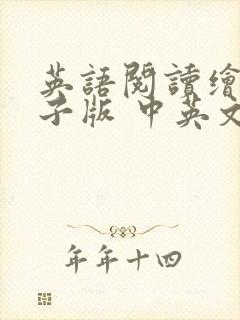 英語閱讀繪
子版 中英文
年年十四